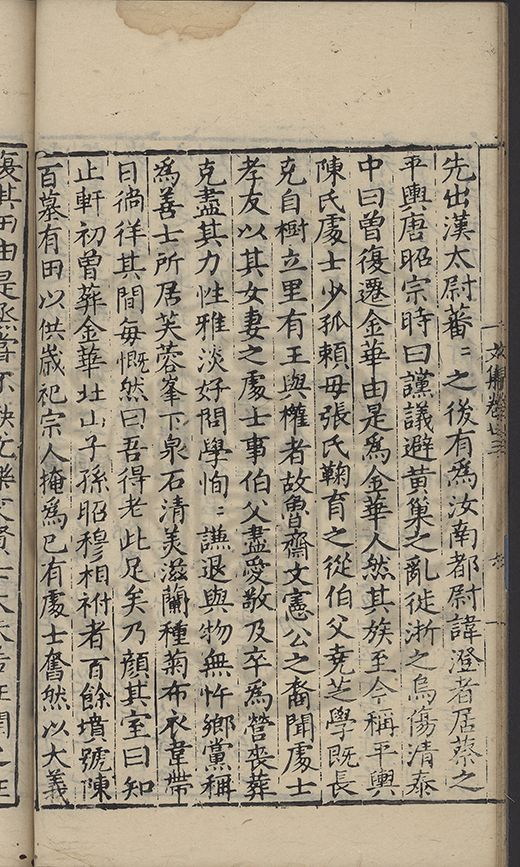 先出漢太尉蕃〻之後有爲汝南都尉諱澄者居蔡之
平輿唐昭宗時曰讜議避黃巢之亂徙浙之烏傷清泰
中曰曾復遷金華由是爲金華人然其族至今稱平輿
陳氏處士少孤賴母張氏鞠育之從伯父堯芝學既長
克自樹立里有王與權者故魯齋文憲公之裔聞處士
孝友以其女妻之處士事伯父盡愛敬及卒爲營喪葬
克盡其力性雅淡好問學恂〻謙退與物無忤鄉黨稱
爲善士所居芙蓉峯下泉石清美滋蘭種菊布衣韋帶
日徜徉其間每慨然曰吾得老此足矣乃顏其室曰知
止軒初曾葬金華北山子孫昭穆相祔者百餘墳號陳
百墓有田以供歲祀宗人掩爲已有處士奮然以大義
復其田由是烝嘗不缺